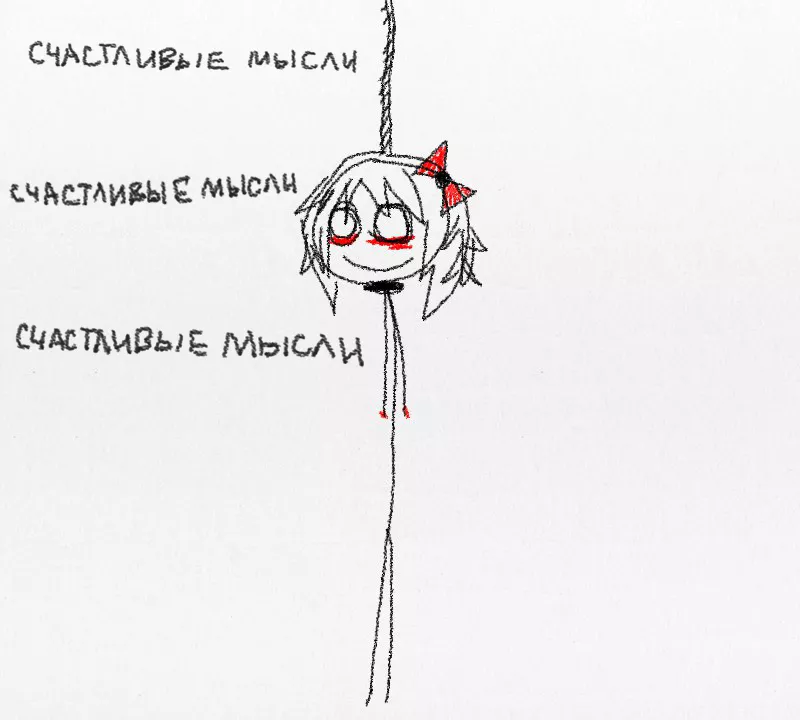 СЧАСТЛИВЫЕ МЫСЛИ
СЧАСТЛИВЫЕ МЫСЛИ
СЧАСТЛИВЫЕ МЫСЛИ